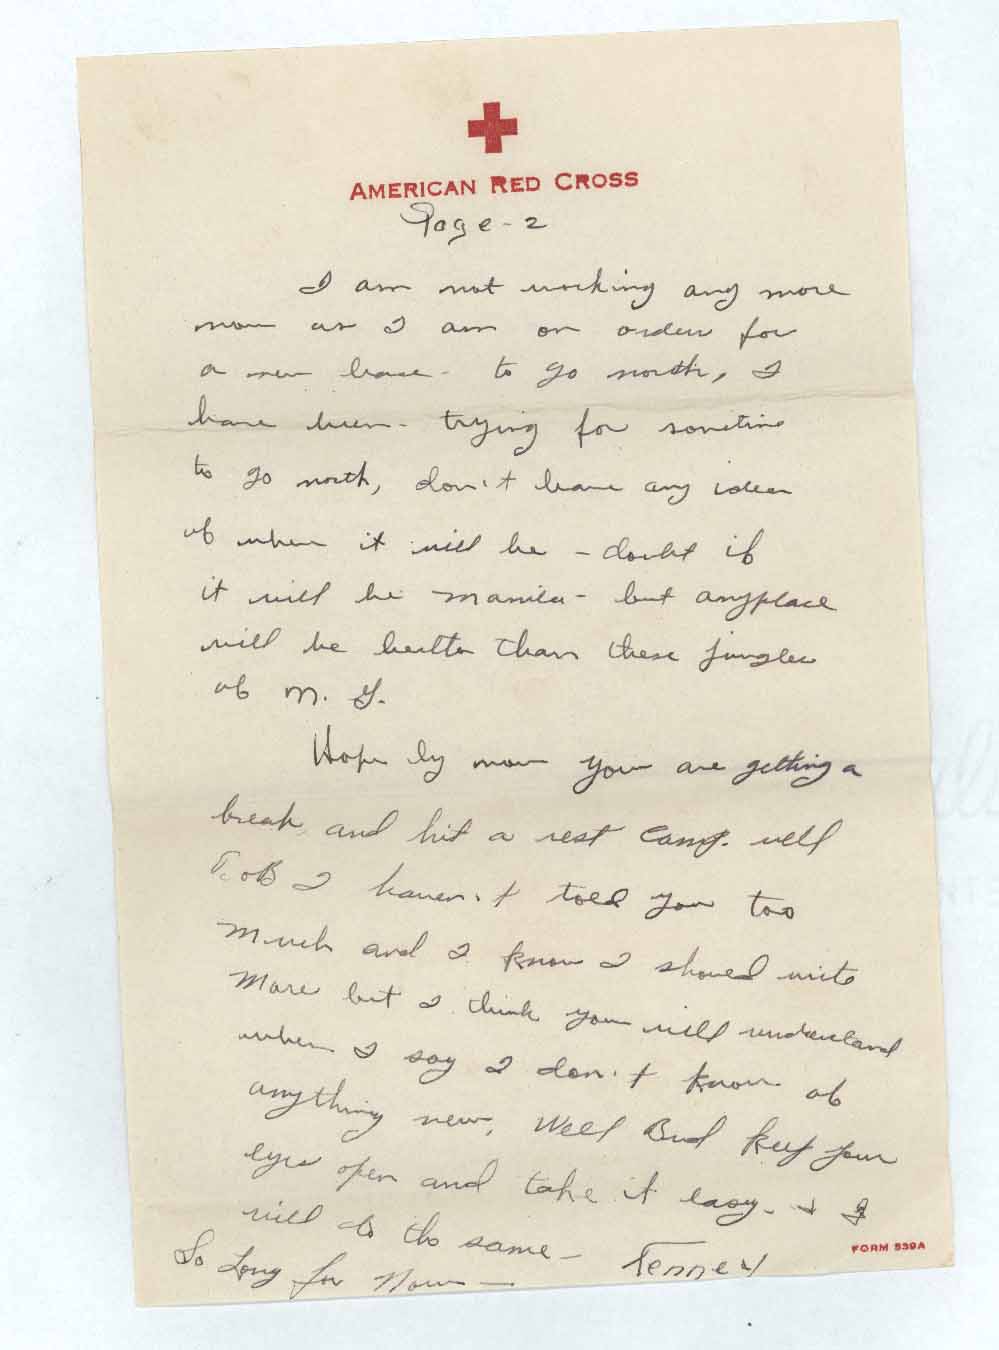 AMERICAN RED CROSS
Page - 2
I am not working any more
now as I am on orders for
a new base - to go north, I
have been - trying for sometime
to go north, don't have any idea
of when it will be - doubt if
it will be Manila - but anyplace
will be better than these jungles
of N. G.
Hope by now you are getting a
break and hit a rest camp. well
I haven't told you too
much and I know I should write
more but I think you will understand
when I say I don't know of
anything new, Well Bud keep your
eyes open and take it easy - + I
will do the same -
So Long for Now -
Tenney
FORM 539A